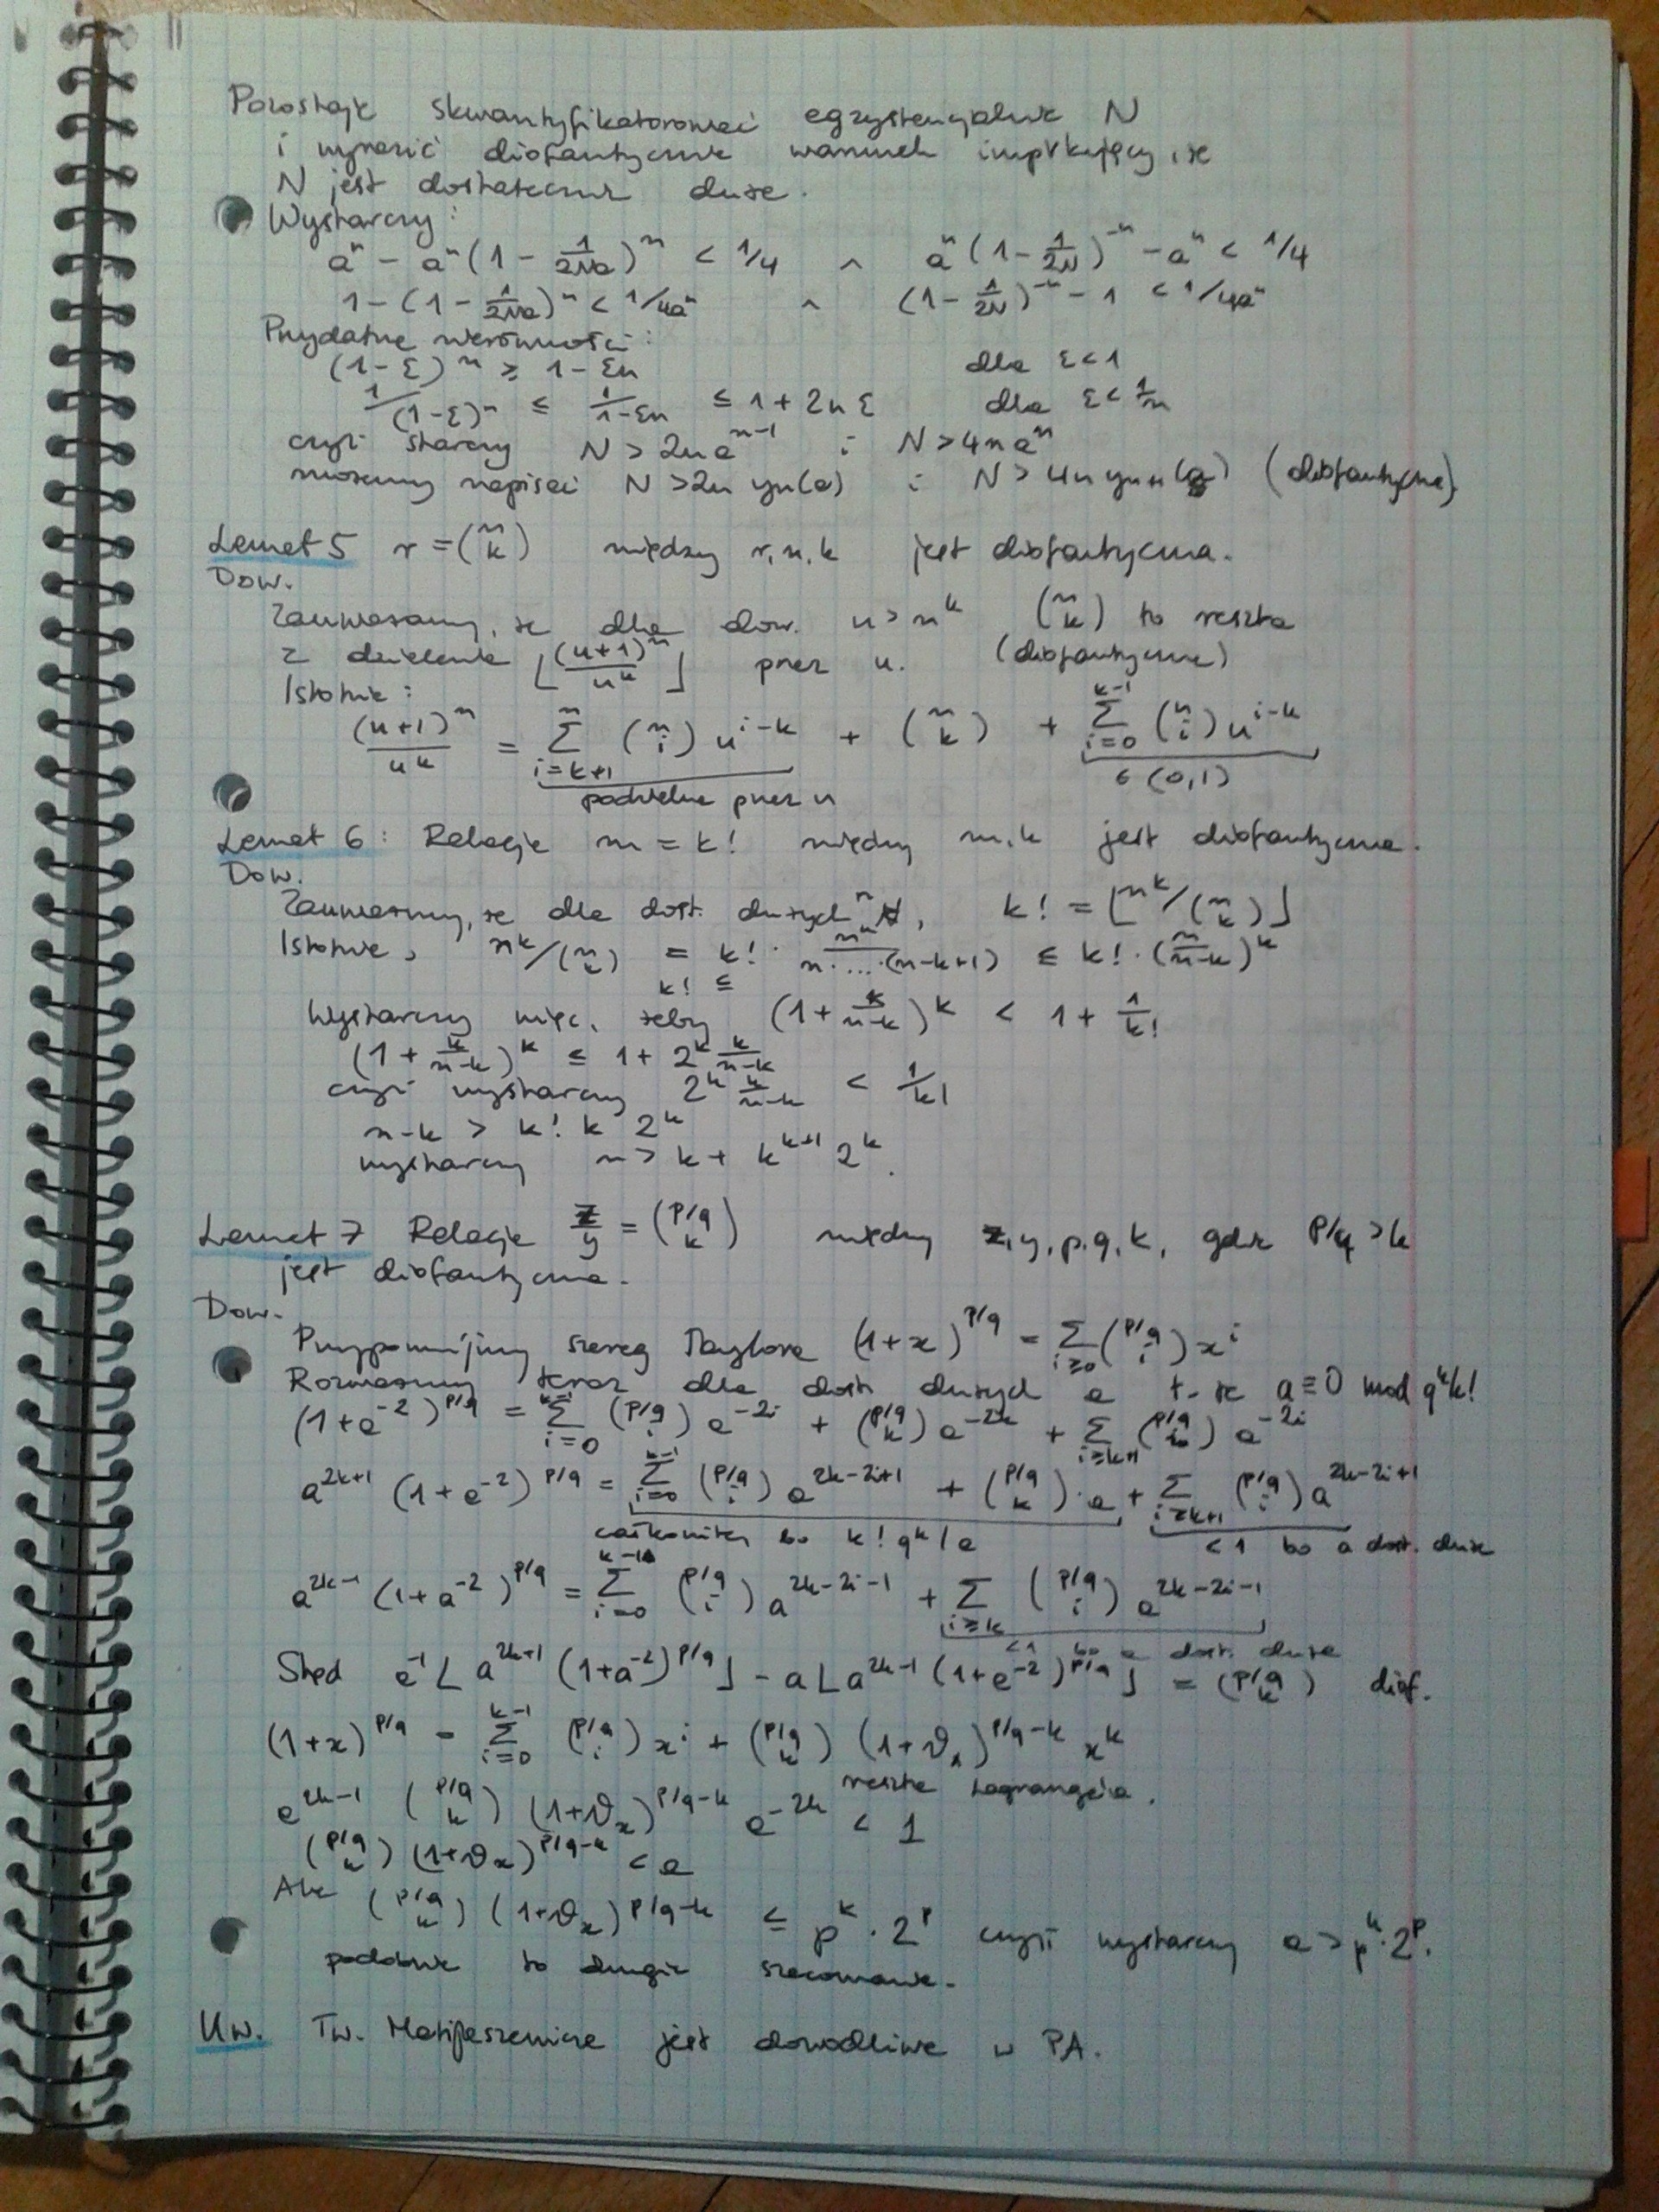 Pozostaje skwantyfikatorować egzystencjalnie N
i wyrazić diofantycznie warunek implikujący, że
N jest dostatecznie duże.
Wystarczy:
aⁿ - aⁿ(1 - 1/2Na)ⁿ < 1/4 ∧ aⁿ(1 - 1/2N)⁻ⁿ - aⁿ < 1/4
1 - (1 - 1/2Na)ⁿ < 1/4aⁿ ∧ (1 - 1/2N)⁻ⁿ - 1 < 1/4aⁿ
Przydatne nierówności:
(1-ε)ⁿ ≥ 1-εn dla ε<1
1/(1-ε)ⁿ ≤ 1/1-εn ≤ 1+2nε dla ε<1/n
czyli starczy N > 2na^{n-1} i N > 4naⁿ
możemy napisać N > 2n yₙ(a) i N > 4n yₙ₊₁(a) (diofantyczne)
Lemat 5 r = (n k) między r, n, k jest diofantyczna.
Dow.
Zauważamy, że dla dow. u > n^k (n k) to reszta
z dzielenia ⌊(u+1)ⁿ/u^k⌋ przez u. (diofantyczne)
Istotnie:
(u+1)ⁿ/u^k = Σ_{i=k+1}^{n} (n i) u^{i-k} + (n k) + Σ_{i=0}^{k-1} (n i) u^{i-k}
podzielne przez u ∈ (0,1)
Lemat 6: Relacja m = k! między m, k jest diofantyczna.
Dow.
Zauważmy, że dla dost. dużych n, k! = ⌊n^k/(n k)⌋
Istotnie, n^k/(n k) = k! · n^k/n·...·(n-k+1) ≤ k! · (n/n-k)^k
k! ≤
Wystarczy więc, żeby (1 + k/n-k)^k < 1 + 1/k!
(1 + k/n-k)^k ≤ 1 + 2^k k/n-k
czyli wystarczy 2^k k/n-k < 1/k!
n-k > k! k 2^k
wystarczy n > k + k^{k+1} 2^k.
Lemat 7 Relacja z/y = (p/q k) między z, y, p, q, k, gdzie p/q > k
jest diofantyczna.
Dow.
Przypomnijmy szereg Taylora (1+x)^{p/q} = Σ_{i≥0} (p/q i) x^i
Rozważmy teraz dla dost. dużych a t. że a ≡ 0 mod q^k k!
(1+a⁻²)^{p/q} = Σ_{i=0}^{k-1} (p/q i) a^{-2i} + (p/q k) a^{-2k} + Σ_{i≥k+1} (p/q i) a^{-2i}
a^{2k+1} (1+a⁻²)^{p/q} = Σ_{i=0}^{k-1} (p/q i) a^{2k-2i+1} + (p/q k)·a + Σ_{i≥k+1} (p/q i) a^{2k-2i+1}
całkowite, bo k! q^k | a < 1 bo a dost. duże
a^{2k-1} (1+a⁻²)^{p/q} = Σ_{i=0}^{k-1} (p/q i) a^{2k-2i-1} + Σ_{i≥k} (p/q i) a^{2k-2i-1}
<1 bo a dost. duże
Stąd a⁻¹ ⌊a^{2k+1} (1+a⁻²)^{p/q}⌋ - a ⌊a^{2k-1} (1+a⁻²)^{p/q}⌋ = (p/q k) diof.
(1+x)^{p/q} = Σ_{i=0}^{k-1} (p/q i) x^i + (p/q k) (1+ϑₓ)^{p/q-k} x^k
reszta Lagrange'a.
a^{2k-1} (p/q k) (1+ϑₓ)^{p/q-k} a^{-2k} < 1
(p/q k) (1+ϑₓ)^{p/q-k} < a
Ale (p/q k) (1+ϑₓ)^{p/q-k} ≤ p^k · 2^p czyli wystarczy a > p^k · 2^p.
podobnie to drugie szacowanie.
Uw. Tw. Matijasiewicza jest dowodliwe w PA.